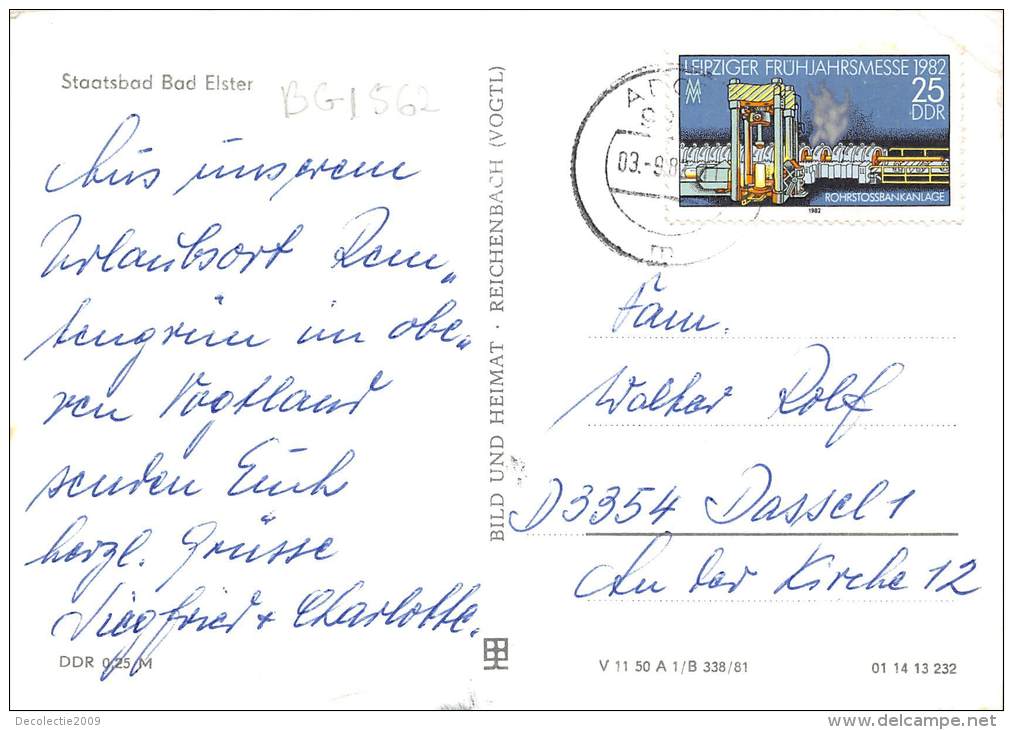 Staatsbad Bad Elster
BG1562
Aus unserem
Urlaubsort Rem„
tengrün im obe„
ren Vogtland
senden Euch
herzl. Grüsse
Siegfried + Charlotte.
DDR 0,25 M
BILD UND HEIMAT · REICHENBACH (VOGTL)
LEIPZIGER FRÜHJAHRSMESSE 1982
MM
25
DDR
ROHRSTOSSBANKANLAGE
1982
03.-9.8
m
Fam.
Walter Rolf
D3354 Dassel 1
An der Kirche 12
V 11 50 A 1/B 338/81
01 14 13 232
Decolectie2009
delcampe.net